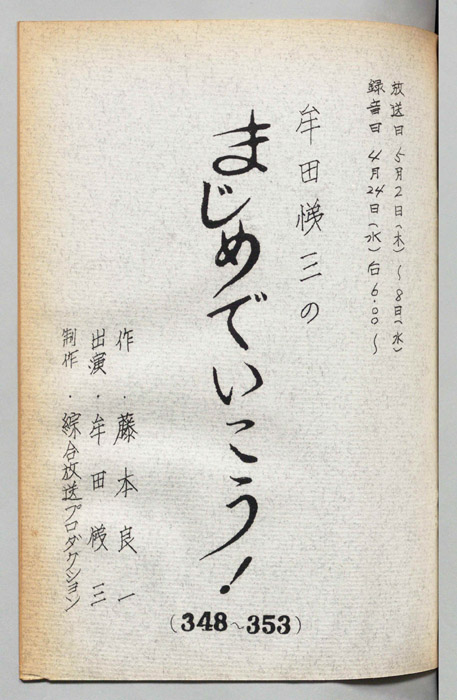 放送日 5月2日(木)~8日(水)
録音日 4月24日(水)后6.00~
牟田悌三の
まじめでいこう!
作・藤本良一
出演・牟田悌三
制作・綜合放送プロダクション
(348~353)